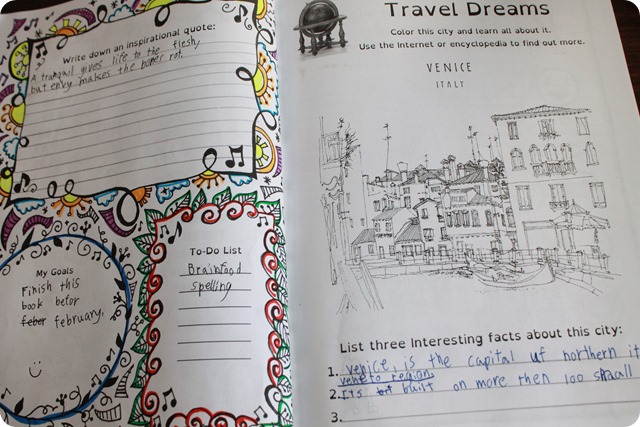 Write down an inspirational quote:
A tranquil gives life to the flesh,
but envy makes the bones rot.
To-Do List
Brainfood
spelling
My Goals
Finish this
book befor
feber february.
Travel Dreams
Color this city and learn all about it.
Use the Internet or encyclopedia to find out more.
VENICE
ITALY
List three Interesting facts about this city:
1. Venice, is the capital of northern it
veneto region.
2. Its built on more then 100 small
3.